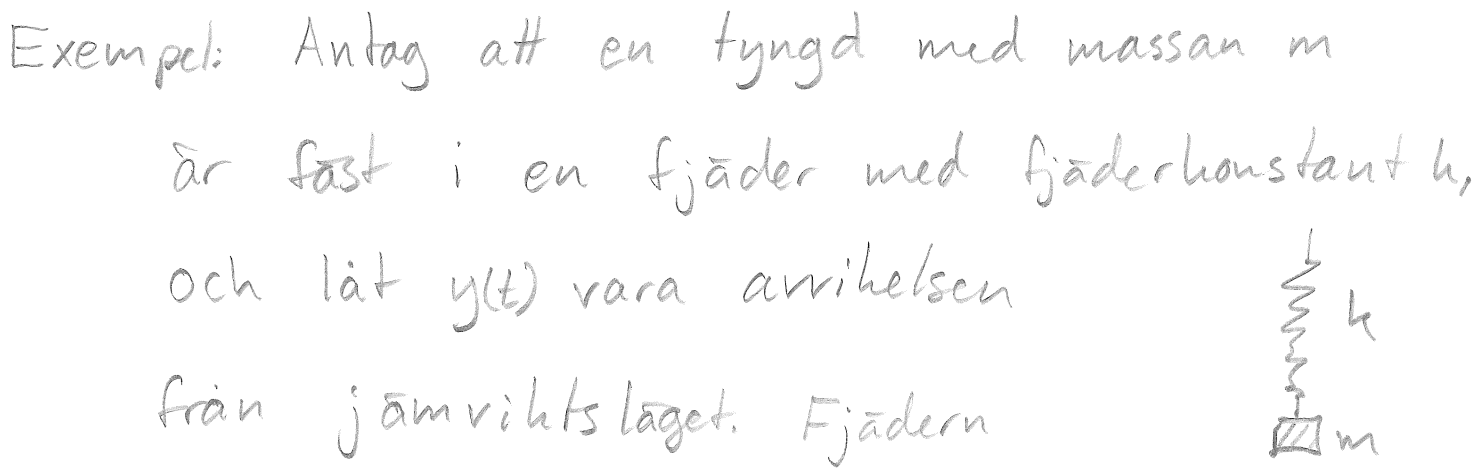 Exempel: Antag att en tyngd med massan m
är fäst i en fjäder med fjäderkonstant k,
och låt y(t) vara avvikelsen
k
från jämviktsläget. Fjädern
m